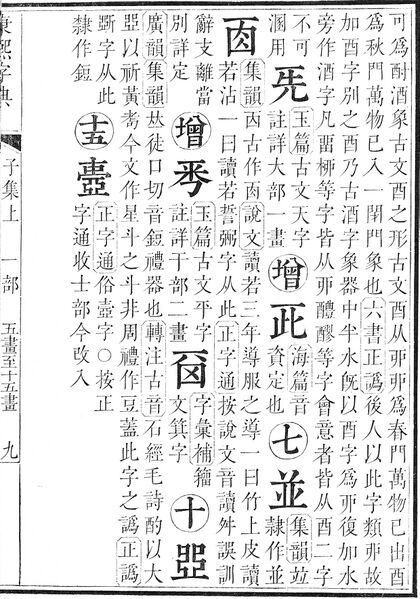 可爲酎酒象古文酉之形古文酉从丣丣爲春門萬物已出酉
爲秋門萬物已入一閉門象也六書正譌後人以此字類丣故
加酉字別之酉乃古酒字象器中半水旣以酉字爲丣復加水
旁作酒字凡畱桺等字皆从丣醴醪等字會意者皆从酉二字
不可溷用 兂 玉篇古文天字註詳大部一畫 增 海篇音資定也 七 並 集韻竝隸作並
㐁 集韻㐁古作㐁說文讀若三年導服之導一曰竹上皮讀
若沾一曰讀若誓弼字从此正字通按說文音讀舛誤訓
辭支離當別詳定 增 玉篇古文平字註詳干部二畫 字彙補籀文箕字 十
廣韻集韻𠀤徒口切音鋀禮器也轉注古音石經毛詩酌以大
以祈黃耇今文作星斗之斗非周禮作豆蓋此字之譌正譌
斲字从此隸作鋀 十五 正字通俗壺字○按正字通收士部今改入
康熙字典 子集上 一部 五畫至十五畫 九